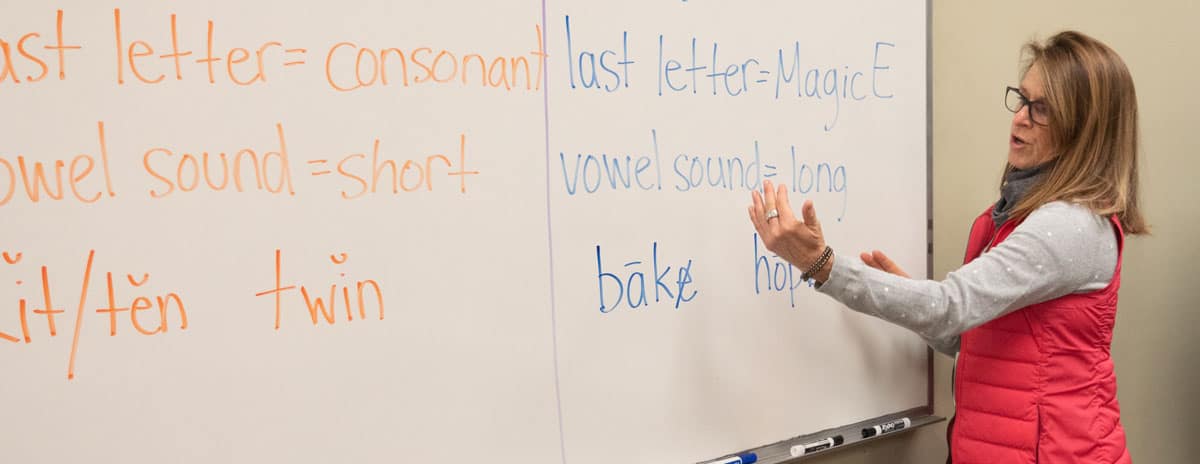 ast letter= consonant
owel sound =short
ĭt/tĕn twĭn
last letter=Magic E
vowel sound= long
bāke̸ hōp